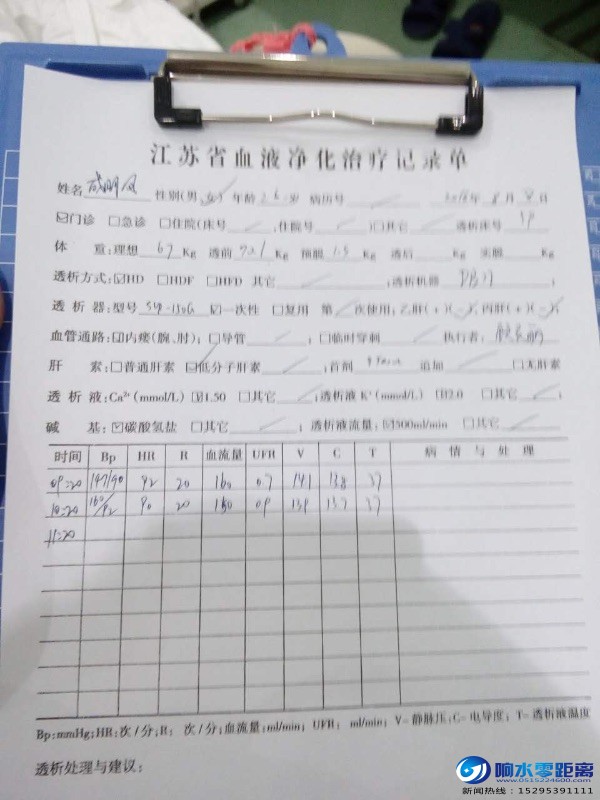 江苏省血液净化治疗记录单
姓名 性别(男,女) 年龄 26 岁 病历号 年 8 月 日
☑门诊 □急诊 □住院(床号 ,住院号 ) □其它 透析床号
体 重:理想 67 Kg 透前 72.1 Kg 预脱 Kg 透后 Kg 实脱 Kg
透析方式:☑HD □HDF □HFD 其它 ;透析机器
透 析 器:型号 SM-150G ☑一次性 □复用 第 次使用;乙肝(+)(-),丙肝(+)(-);
血管通路:☑内瘘(腕、肘);□导管 ;□临时穿刺 执行者:
肝 素:□普通肝素 ☑低分子肝素 ;首剂 追加 □无肝素
透 析 液:Ca²⁺(mmol/L) ☑1.50 □其它 ;透析液K⁺(mmol/L) ☑2.0 □其它 ;
碱 基:☑碳酸氢盐 □其它 ;透析液流量:☑500ml/min □其它
时间 Bp HR R 血流量 UFR V C T 病 情 与 处 理
09:20 147/90 92 20 160 0.7 141 138 37
10:20 160/92 90 20 180 0.9 139 137 37
11:20
Bp:mmHg;HR:次/分;R: 次/分;血流量:ml/min; UFR: ml/min; V-静脉压;C-电导度; T-透析液温度
透析处理与建议:
响水零距离
www.0515224600.com
新闻热线:15295391111